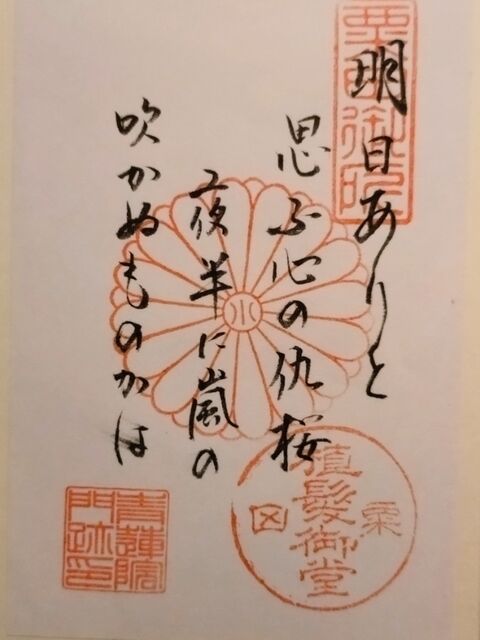 明日ありと
思ふ心の仇桜
夜半に嵐の
吹かぬものかは
粟田御所
植髪御堂
粟
田
青蓮院
門跡印